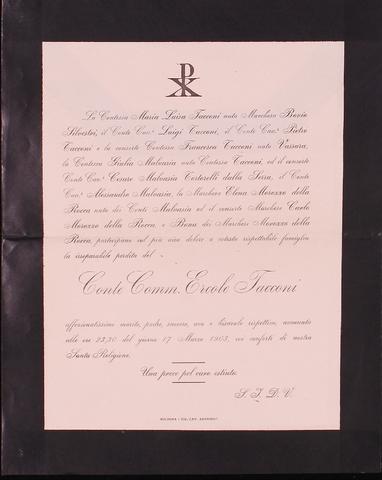 La Contessa Maria Luisa Tacconi nata Marchesa Bosio
Silvestri, il Conte Cav. Luigi Tacconi, il Conte Cav. Pietro
Tacconi e la consorte Contessa Francesca Tacconi nata Vassura,
la Contessa Giulia Malvasia nata Contessa Tacconi, ed il consorte
Conte Cav. Cesare Malvasia Tortorelli dalla Serra, il Conte
Cav. Alessandro Malvasia, la Marchesa Elena Morozzo della
Rocca nata dei Conti Malvasia ed il consorte Marchese Carlo
Morozzo della Rocca, e Bona dei Marchesi Morozzo della
Rocca, partecipano col più vivo dolore a cotesta rispettabile famiglia
la irreparabile perdita del
Conte Comm. Ercole Tacconi
affezionatissimo marito, padre, suocero, avo e bisavolo rispettivo, avvenuta
alle ore 23,30 del giorno 17 Marzo 1903, coi conforti di nostra
Santa Religione.
Una prece pel caro estinto.
S. I. D. V.
BOLOGNA